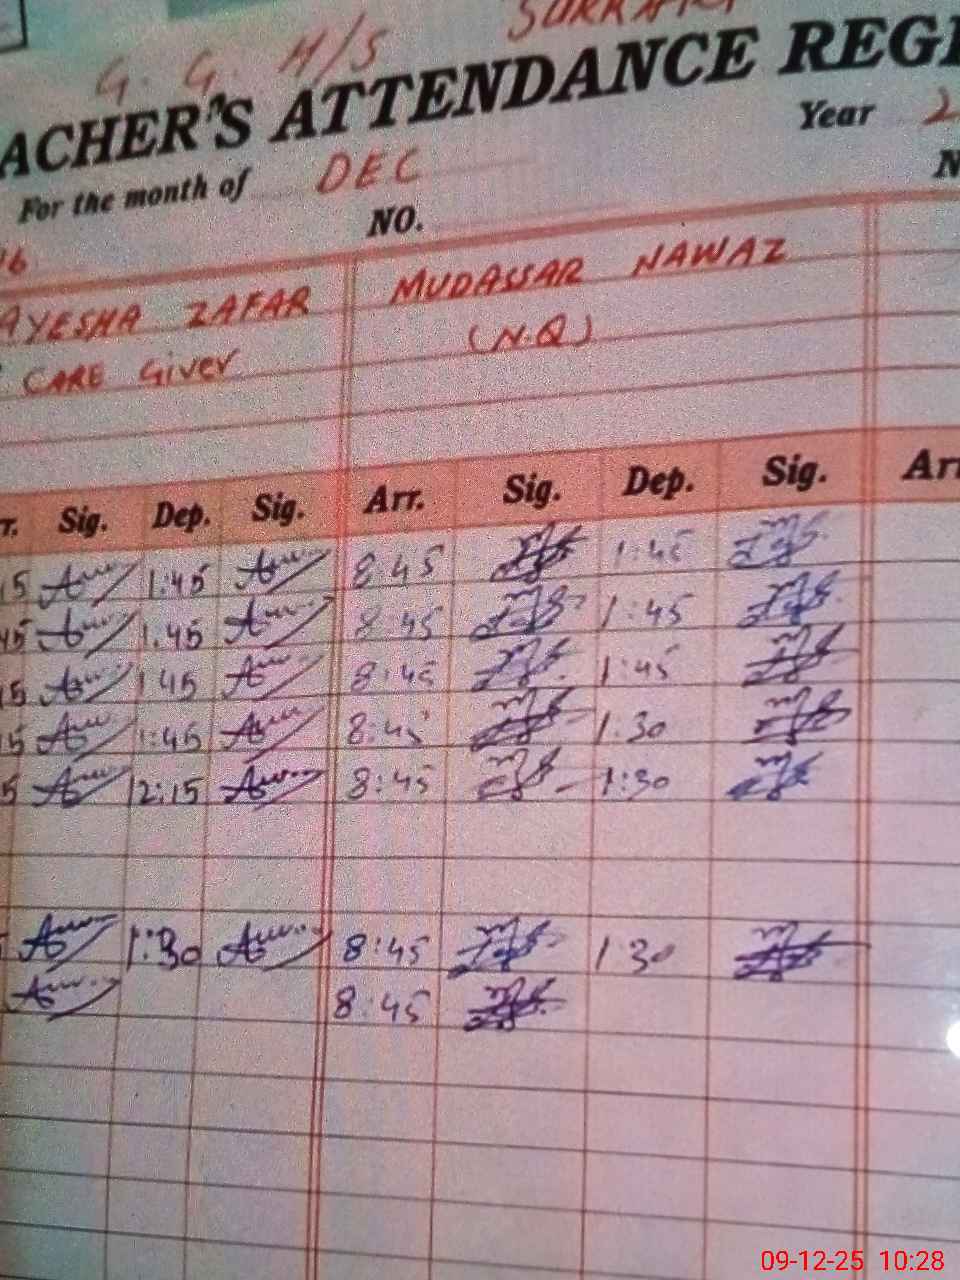 G. G. H/S
ACHER'S ATTENDANCE REGI
Year 2
For the month of DEC
N
NO.
AYESHA ZAFAR MUDASSAR NAWAZ
CARE Giver (N.Q)
r. Sig. Dep. Sig. Arr. Sig. Dep. Sig. Arr
15 1:45 8:45 1:45
45 1:45 8:45 1:45
15 1:45 8:45 1:45
15 1:45 8:45 1:30
5 12:15 8:45 1:30
1:30 8:45 1:30
8:45
09-12-25 10:28